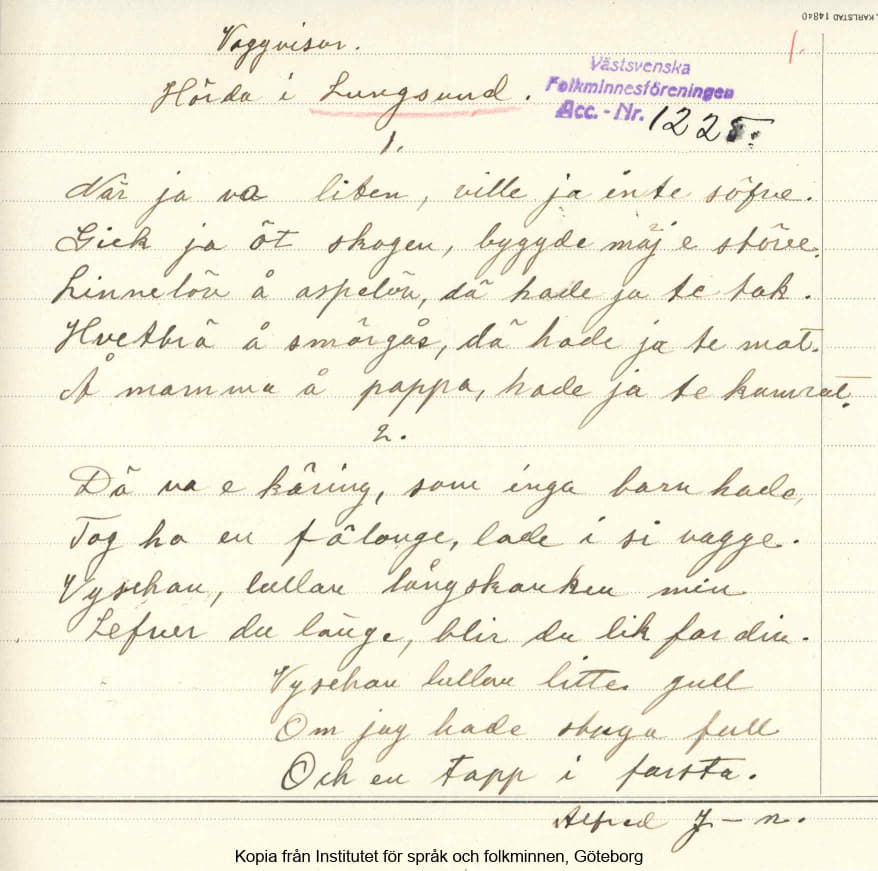 KARLSTAD 14840
Vaggvisor.
1.
Hörda i Lungsund.
Västsvenska
Folkminnesföreningen
Acc. - Nr. 1225.
1.
När ja va liten, ville ja inte söfve.
Gick ja öt skogen, byggde mäj e stöve.
Linnelöv å aspelöv, dä hade ja te tak.
Hvetbrä å smörgås, dä hade ja te mat.
Å mamma å pappa, hade ja te kamrat.
2.
Dä va e käring, som inga barn hade,
Tog ho en fålonge, lade i si vagge.
Vyschan, lullan långskanken min
Lefver du länge, blir du lik far din.
Vyschan lullan litte gull
Om jag hade stuga full
Och en tapp i farsta.
Alfred J-n.
Kopia från Institutet för språk och folkminnen, Göteborg